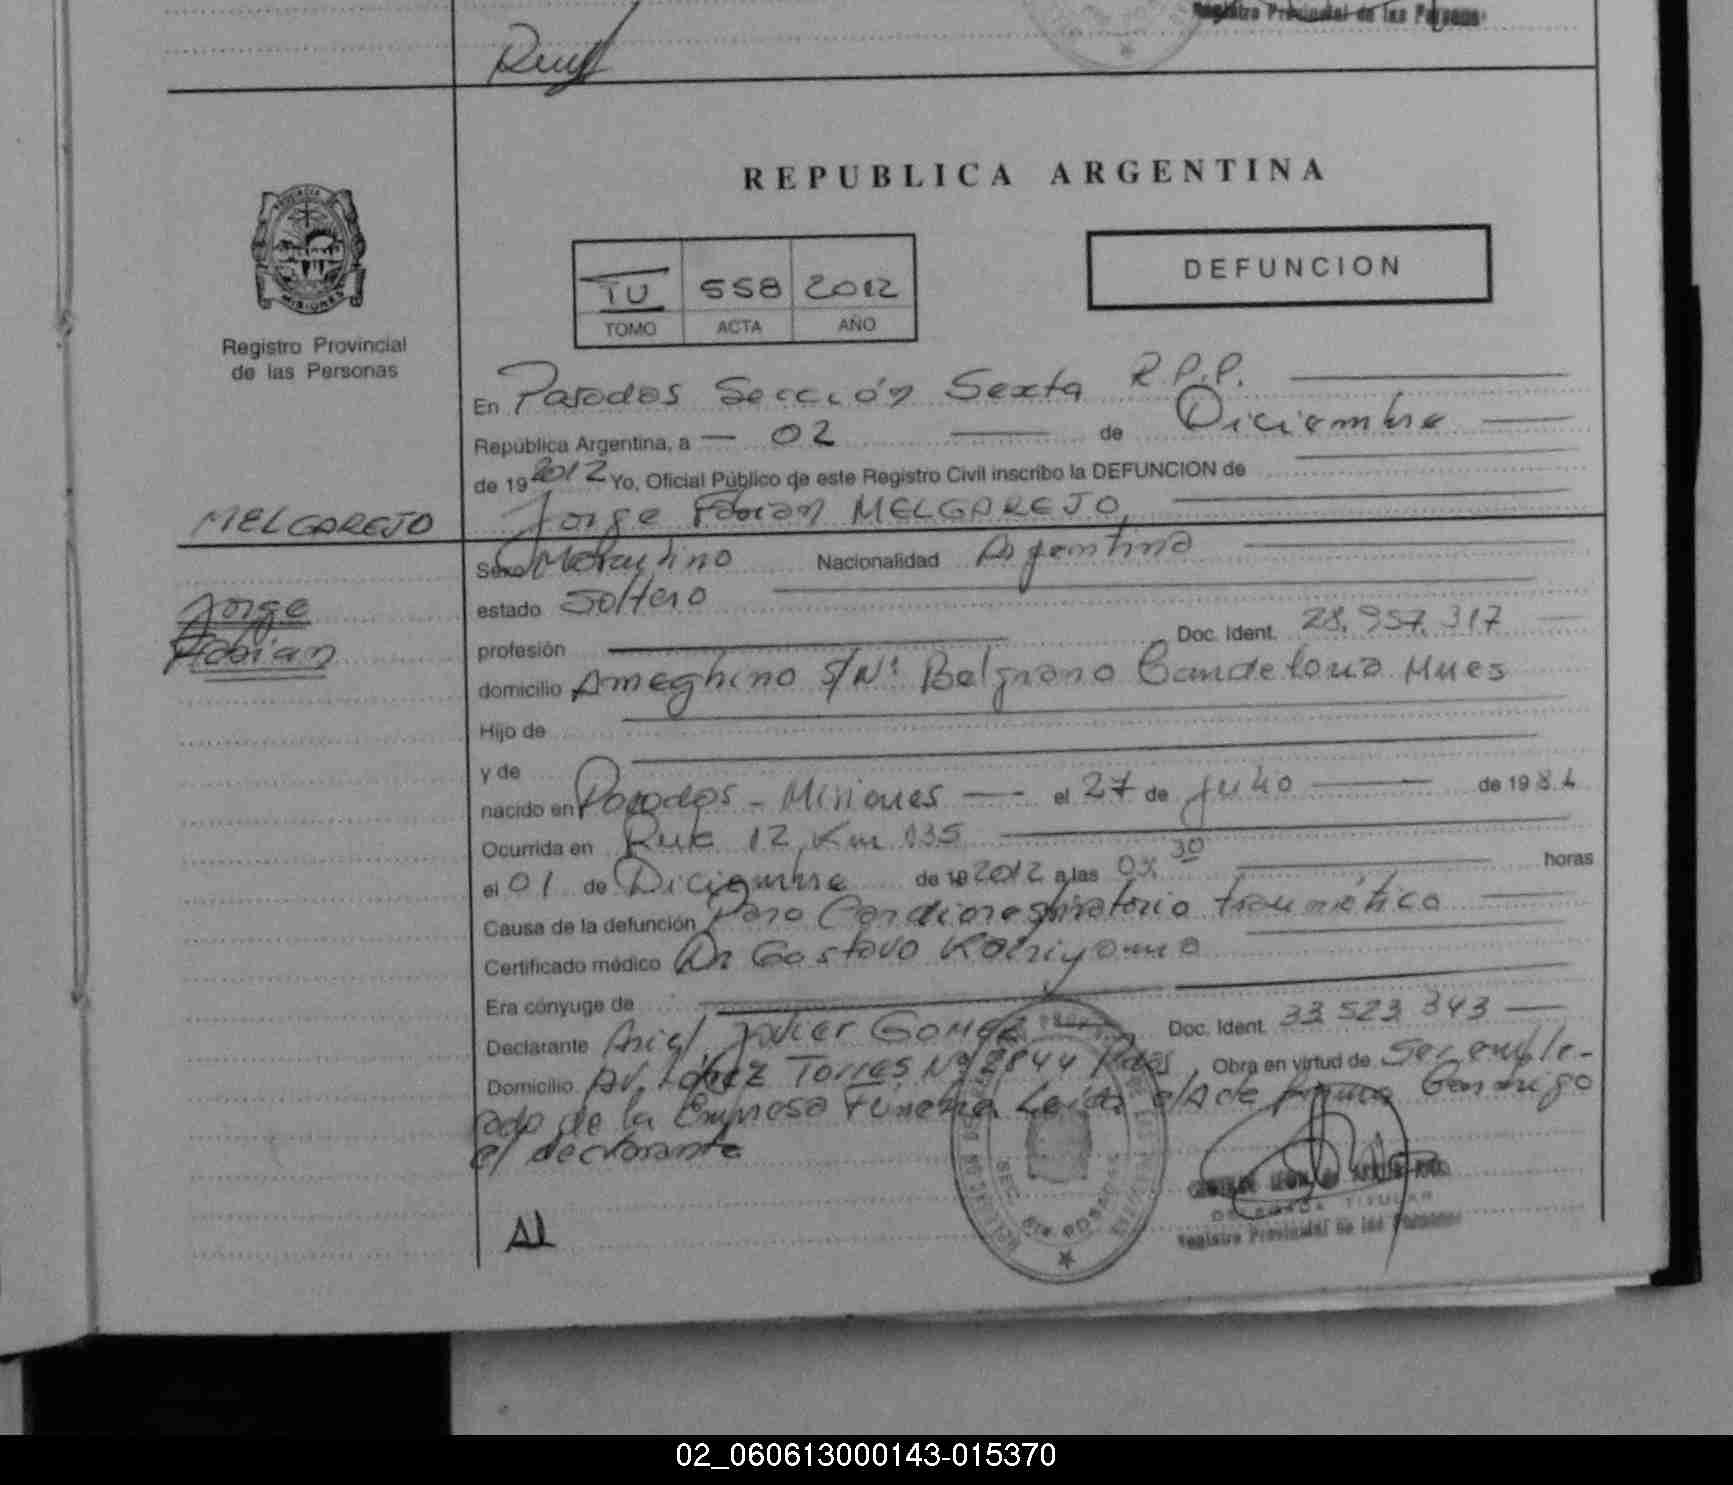 Registro Provincial de las Personas
REPUBLICA ARGENTINA
PROVINCIA DE
MISIONES
Registro Provincial
de las Personas
TU 558 2012
TOMO ACTA AÑO
DEFUNCION
En Posadas Sección Sexta R.P.P.
República Argentina, a 02 de Diciembre
de 19 2012 Yo, Oficial Público de este Registro Civil inscribo la DEFUNCION de
MELGAREJO
Jorge Fabian MELGAREJO
Jorge
Fabian
Sexo Masculino Nacionalidad Argentina
estado Soltero
profesión Doc. Ident. 28.957.317
domicilio Ameghino S/Nº Belgrano Candelaria Mnes
Hijo de
y de
nacido en Posadas - Misiones el 27 de Julio de 198
Ocurrida en Ruta 12 Km 135
el 01 de Diciembre de 19 2012 a las 30 horas
Causa de la defunción Paro Cardiorespiratorio traumático
Certificado médico Dr Gustavo
Era cónyuge de
Declarante Ariel Javier Gomez Doc. Ident. 33 523 343
Domicilio Av. López Torres Nº 2844 Pdas Obra en virtud de Ser emple-
ado de la Empresa Funeraria firma Conmigo
el declarante
DELEGADA TITULAR
Registro Provincial de las Personas
02_060613000143-015370